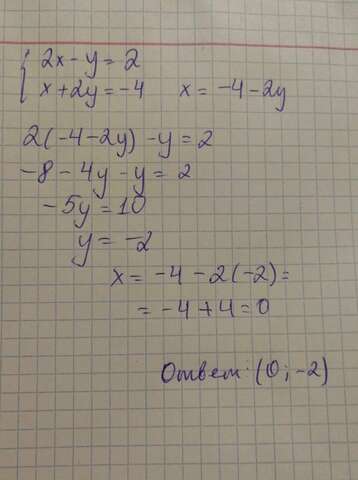 { 2x - y = 2
x + 2y = -4 x = -4 - 2y
2(-4 - 2y) - y = 2
-8 - 4y - y = 2
-5y = 10
y = -2
x = -4 - 2(-2) =
= -4 + 4 = 0
Ответ: (0; -2)